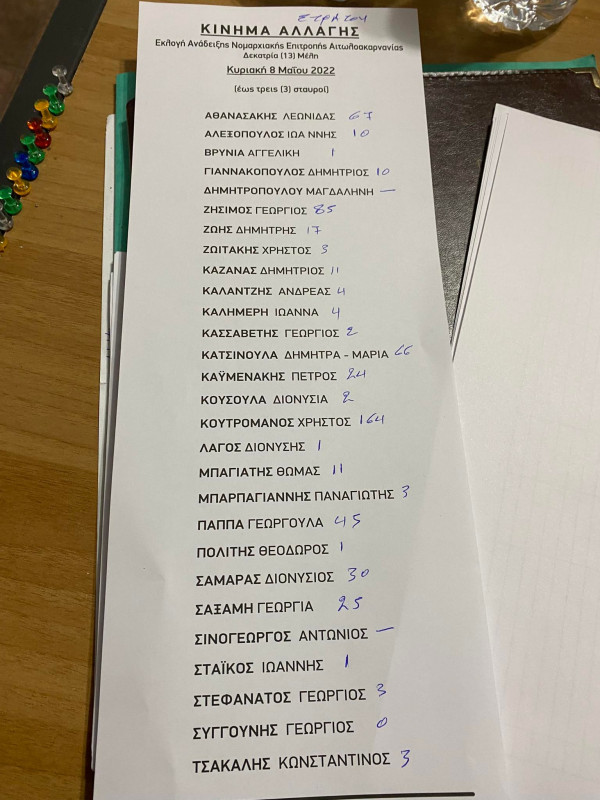 ΚΙΝΗΜΑ ΑΛΛΑΓΗΣ
Εκλογή Ανάδειξης Νομαρχιακής Επιτροπής Αιτωλοακαρνανίας
Δεκατρία (13) Μέλη
Κυριακή 8 Μαΐου 2022
(έως τρεις (3) σταυροί)
ΑΘΑΝΑΣΑΚΗΣ ΛΕΩΝΙΔΑΣ 67
ΑΛΕΞΟΠΟΥΛΟΣ ΙΩΑ ΝΝΗΣ 10
ΒΡΥΝΙΑ ΑΓΓΕΛΙΚΗ 1
ΓΙΑΝΝΑΚΟΠΟΥΛΟΣ ΔΗΜΗΤΡΙΟΣ 10
ΔΗΜΗΤΡΟΠΟΥΛΟΥ ΜΑΓΔΑΛΗΝΗ —
ΖΗΣΙΜΟΣ ΓΕΩΡΓΙΟΣ 85
ΖΩΗΣ ΔΗΜΗΤΡΗΣ 17
ΖΩΙΤΑΚΗΣ ΧΡΗΣΤΟΣ 3
ΚΑΖΑΝΑΣ ΔΗΜΗΤΡΙΟΣ 11
ΚΑΛΑΝΤΖΗΣ ΑΝΔΡΕΑΣ 4
ΚΑΛΗΜΕΡΗ ΙΩΑΝΝΑ 4
ΚΑΣΣΑΒΕΤΗΣ ΓΕΩΡΓΙΟΣ 2
ΚΑΤΣΙΝΟΥΛΑ ΔΗΜΗΤΡΑ - ΜΑΡΙΑ 66
ΚΑΫΜΕΝΑΚΗΣ ΠΕΤΡΟΣ 24
ΚΟΥΣΟΥΛΑ ΔΙΟΝΥΣΙΑ 2
ΚΟΥΤΡΟΜΑΝΟΣ ΧΡΗΣΤΟΣ 164
ΛΑΓΟΣ ΔΙΟΝΥΣΗΣ 1
ΜΠΑΓΙΑΤΗΣ ΘΩΜΑΣ 11
ΜΠΑΡΠΑΓΙΑΝΝΗΣ ΠΑΝΑΓΙΩΤΗΣ 3
ΠΑΠΠΑ ΓΕΩΡΓΟΥΛΑ 45
ΠΟΛΙΤΗΣ ΘΕΟΔΩΡΟΣ 1
ΣΑΜΑΡΑΣ ΔΙΟΝΥΣΙΟΣ 30
ΣΑΞΑΜΗ ΓΕΩΡΓΙΑ 25
ΣΙΝΟΓΕΩΡΓΟΣ ΑΝΤΩΝΙΟΣ —
ΣΤΑΪΚΟΣ ΙΩΑΝΝΗΣ 1
ΣΤΕΦΑΝΑΤΟΣ ΓΕΩΡΓΙΟΣ 3
ΣΥΓΓΟΥΝΗΣ ΓΕΩΡΓΙΟΣ 0
ΤΣΑΚΑΛΗΣ ΚΩΝΣΤΑΝΤΙΝΟΣ 3